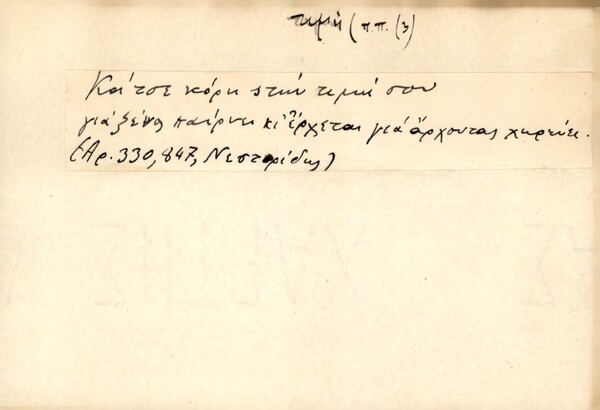 τιμή (π.π. (3)
Κάτσε κόρη στήν τιμή σου
γιά ξένος παίρνει κι' ἔρχεται γιά ἄρχοντας χηρεύει.
(Αρ. 330, 847, Νεστορίδης)